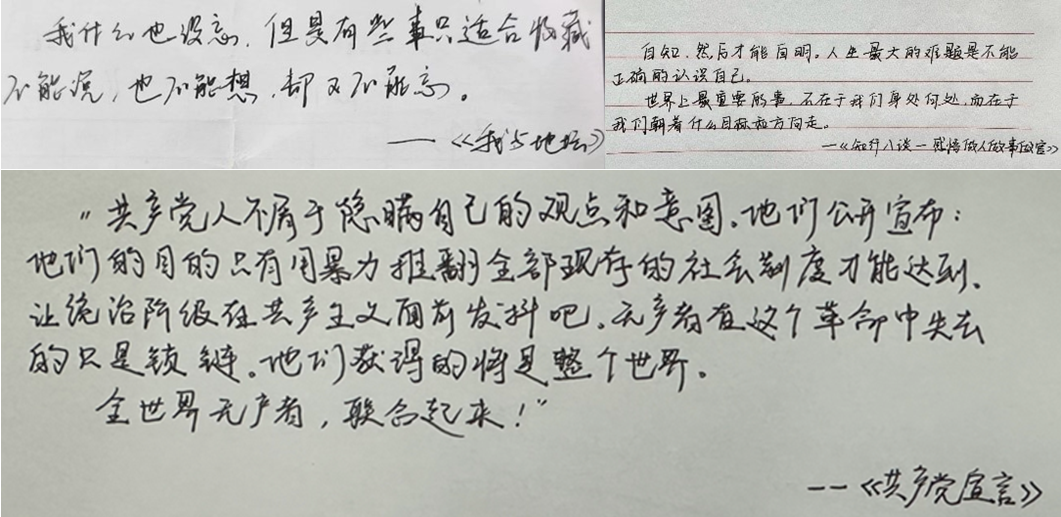 我什么也没忘，但是有些事只适合收藏
不能说，也不能想，却又不能忘。
——《我与地坛》
自知，然后才能自明。人生最大的难题是不能
正确的认识自己。
世界上最重要的事，不在于我们身处何处，而在于
我们朝着什么目标和方向走。
—《知行八谈—感悟做人做事做官》
“共产党人不屑于隐瞒自己的观点和意图。他们公开宣布：
他们的目的只有用暴力推翻全部现存的社会制度才能达到。
让统治阶级在共产主义面前发抖吧。无产者在这个革命中失去
的只是锁链。他们获得的将是整个世界。
全世界无产者，联合起来！”
——《共产党宣言》